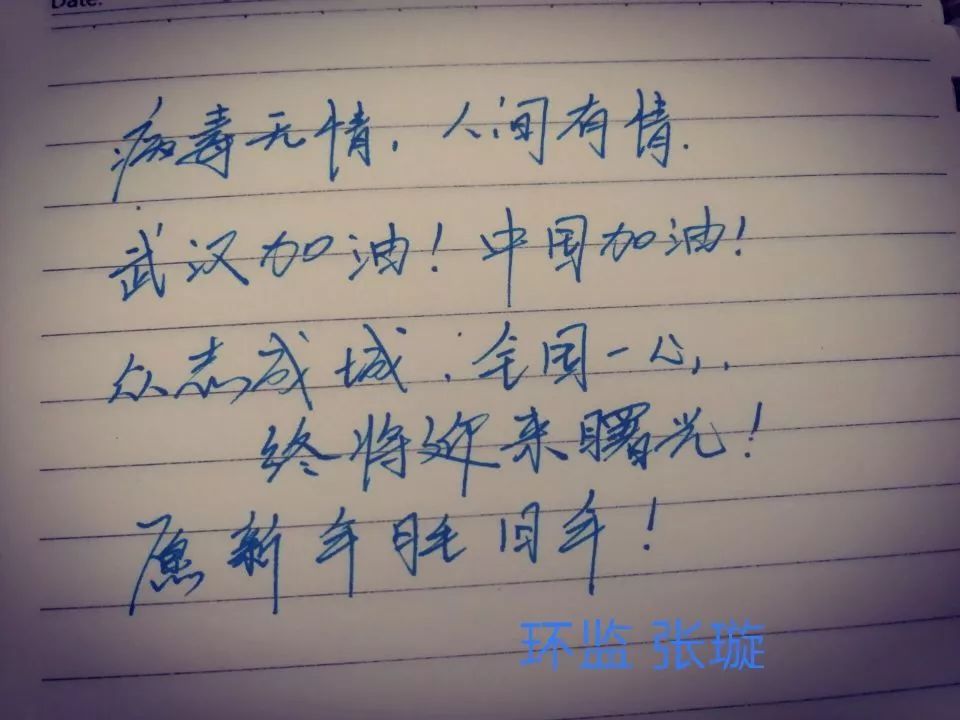 Date.
病毒无情，人间有情.
武汉加油！中国加油！
众志成城，全国一心，
终将迎来曙光！
愿新年胜旧年！
环监 张璇